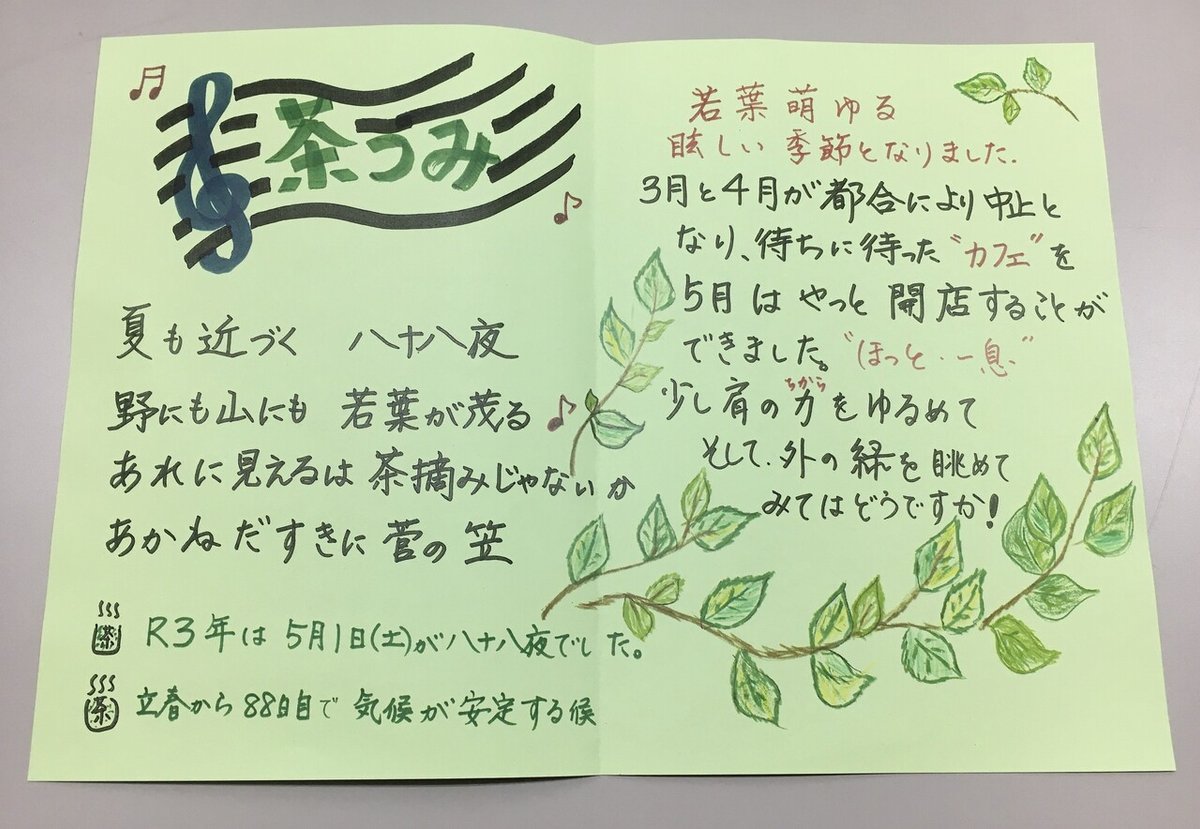 茶つみ
夏も近づく 八十八夜
野にも山にも 若葉が茂る
あれに見えるは 茶摘みじゃないか
あかねだすきに 菅の笠
茶 R3年は 5月1日(土)が八十八夜でした。
茶 立春から88日目で 気候が安定する候
若葉萌ゆる
眩しい季節となりました.
3月と4月が都合により中止と
なり、待ちに待った"カフェ"を
5月はやっと開店することが
できました。"ほっと・一息"
ちから
少し肩の力をゆるめて
そして、外の緑を眺めて
みてはどうですか!